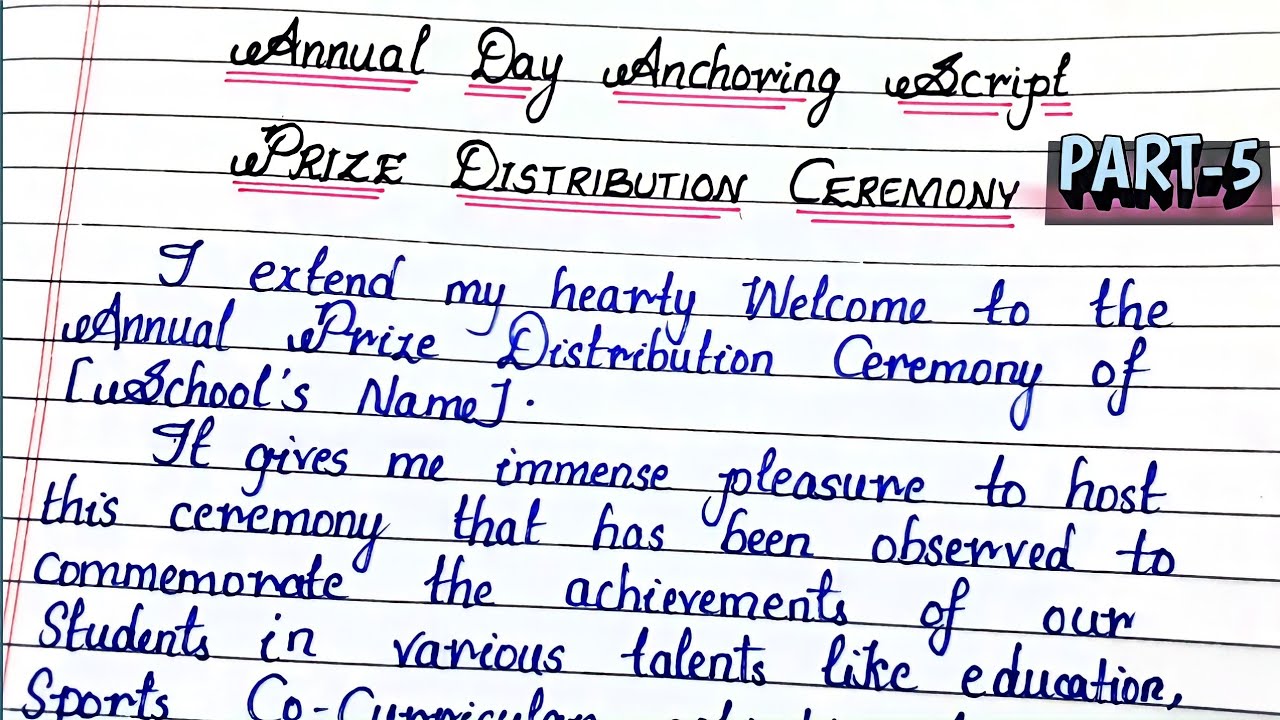 Annual Day Anchoring Script
PRIZE DISTRIBUTION CEREMONY
PART-5
I extend my hearty Welcome to the
Annual Prize Distribution Ceremony of
[School's Name].
It gives me immense pleasure to host
this ceremony that has been observed to
commemorate the achievements of our
Students in various talents like education,
Sports Co-Curricular